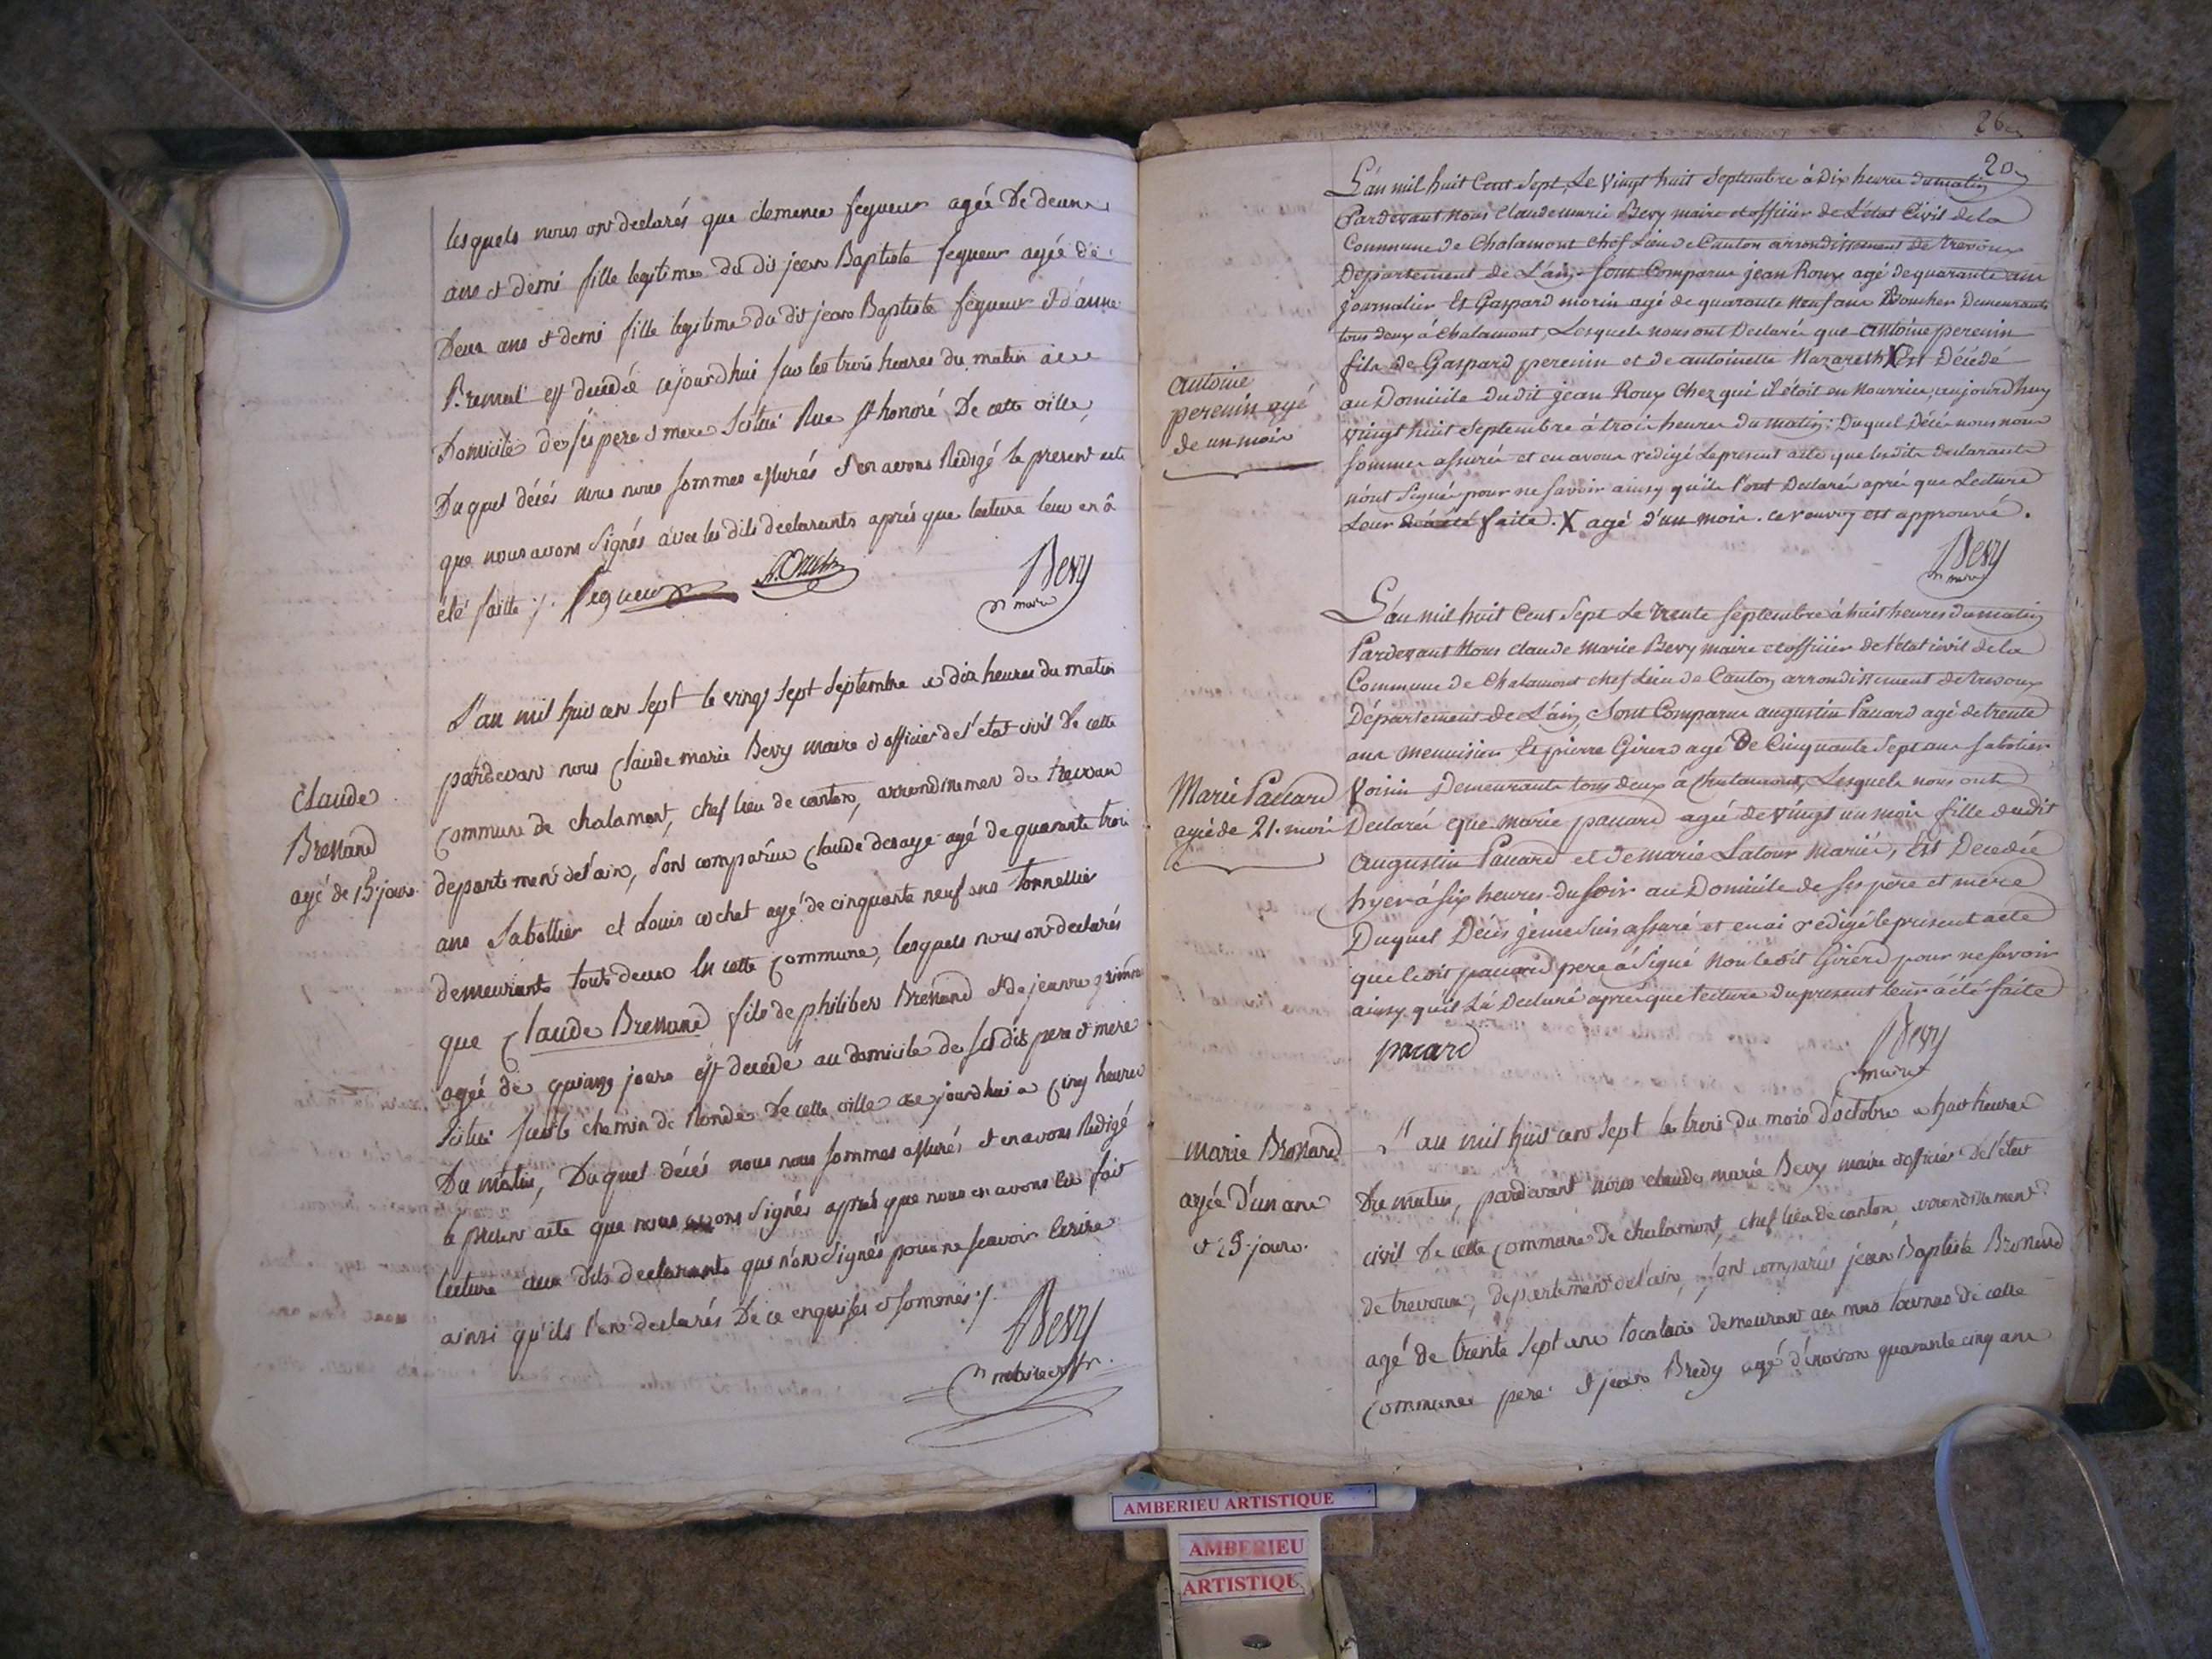 lesquels nous ont declarés que clemence fegueur agée De deux
ans et demi fille legitime du dit jean Baptiste fegueur agée de
Deux ans et demi fille legitime du dit jean Baptiste fegueur et d'anne
est decedée cejourd'hui sur les trois heures du matin au
Domicile de ses pere et mere scitué Rue st honoré De cette ville,
Duquel décés nous nous sommes assurés et en avons Redigé le present acte
que nous avons signés avec les dits declarants aprés que lecture leur en â
été faitte ./. fegueur
Bevy
maire
L'an mil huit cent sept le vingt sept septembre a dix heures du matin
pardevant nous Claude marie Bevy maire et officier de l'état civil de cette
Commune de chalamont, chef lieu de canton, arrondissement de trevoux
departement de l'ain, sont comparus Claude desaye agé de quarante trois
Claude
Bressand
agé de 15 jours
ans sabottier et Louis cochet agé de cinquante neuf ans tonnellier
demeurants tous deux en cette Commune, lesquels nous ont declarés
que Claude Bressand fils de philibert Bressand et de jeanne
agée de quinze jours est decedé au domicile de ses dits pere et mere
scitué sur le chemin de Ronde de cette ville ce jourd'hui a Cinq heures
Du matin, Duquel décés nous nous sommes assurés et en avons Redigé
le present acte que nous avons signés aprés que nous en avons eu fait
lecture aux dits declarants qui n'ont signés pour ne scavoir Ecrire
ainsi qu'ils l'ont declarés De ce enquises et sommés ./.
Bevy
26
20
L'an mil huit Cent Sept, Le Vingt huit Septembre à Dix heures du matin
Pardevant Nous Claude marie Bevy maire et officier de L'état Civil de la
Commune de Chalamont chef Lieu de Canton arrondissement de trevoux
Département de L'ain, sont Comparus jean Roux agé de quarante ans
journalier Et Gaspard morin agé de quarante neuf ans Boucher Demeurants
tous deux à Chalamont, Lesquels nous ont Déclaré que antoine perenin
fils de Gaspard perenin et de antoinette Nazareth X Est Décédé
antoine
perenin agé
de un mois
au Domicile du dit jean Roux Chez qui il étoit en Nourrice, aujourd'huy
vingt huit Septembre à trois heures du matin: Duquel Décès nous nous
sommes assurés et en avons rédigé Le present acte que les dits declarants
n'ont Signé pour ne Savoir ainsy qu'ils l'ont Declaré après que Lecture
Leur a été faite. X agé d'un mois. ce renvoy est approuvé.
Bevy
maire
L'an mil huit Cent Sept Le trente Septembre à huit heures du matin
Pardevant Nous claude Marie Bevy maire et officier de l'état civil de la
Commune de Chalamont chef Lieu de Canton arrondissement de trevoux
Département de L'ain, Sont Comparus augustin Paccard agé de trente
ans menuisier Et pierre Girerd agé De Cinquante Sept ans sabotier
Marie Paccard
agée de 21. mois
Voisin Demeurants tous deux à Chalamont, Lesquels nous ont
Declaré que marie paccard agée de vingt un mois fille du dit
augustin Paccard et de marie Latour Mariés, Est Decedée
hyer à six heures du soir au Domicile de ses père et mère
Duquel Décès je me suis assuré et en ai rédigé le présent acte
que le dit paccard pere à Signé Non le dit Girerd pour ne savoir
ainsy qu'il L'a Declaré après que lecture du present leur à été faite
pacard
Bevy
maire
marie Bressand
agée d'un ans
L'an mil huit cent sept le trois du mois d'octobre a huit heures
Du matin, pardevant nous claude marie Bevy maire et officier de l'état
civil De cette Commune De chalamont, chef lieu de canton, arrondissement
de trevoux, departement de l'ain, sont comparus jean Baptiste Bressand
agé de trente sept ans demeurant au mas tournas de cette
Commune pere et jean Bredy agé d'environ quarante cinq ans
AMBERIEU ARTISTIQUE
AMBERIEU
ARTISTIQUE